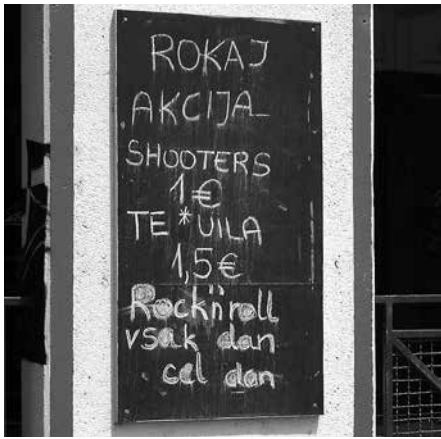 ROKAJ
AKCIJA_
SHOOTERS
1€
TE*UILA
1,5€
Rock'n'roll
vsak dan
cel dan